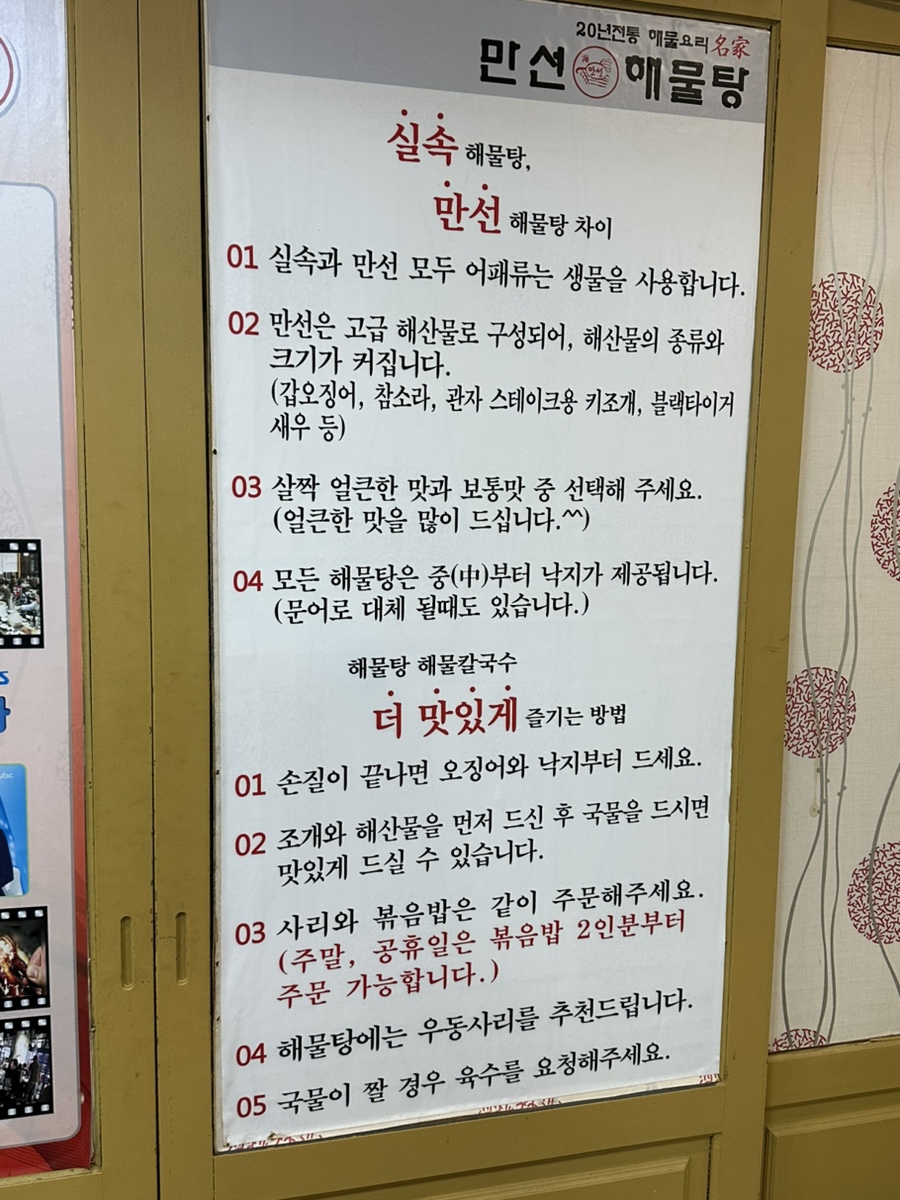 20년전통 해물요리名家
만선 해물탕
실속 해물탕,
만선 해물탕 차이
01 실속과 만선 모두 어패류는 생물을 사용합니다.
02 만선은 고급 해산물로 구성되어, 해산물의 종류와
크기가 커집니다.
(갑오징어, 참소라, 관자 스테이크용 키조개, 블랙타이거
새우 등)
03 살짝 얼큰한 맛과 보통맛 중 선택해 주세요.
(얼큰한 맛을 많이 드십니다.^^)
04 모든 해물탕은 중(中)부터 낙지가 제공됩니다.
(문어로 대체 될때도 있습니다.)
해물탕 해물칼국수
더 맛있게 즐기는 방법
01 손질이 끝나면 오징어와 낙지부터 드세요.
02 조개와 해산물을 먼저 드신 후 국물을 드시면
맛있게 드실 수 있습니다.
03 사리와 볶음밥은 같이 주문해주세요.
(주말, 공휴일은 볶음밥 2인분부터
주문 가능합니다.)
04 해물탕에는 우동사리를 추천드립니다.
05 국물이 짤 경우 육수를 요청해주세요.